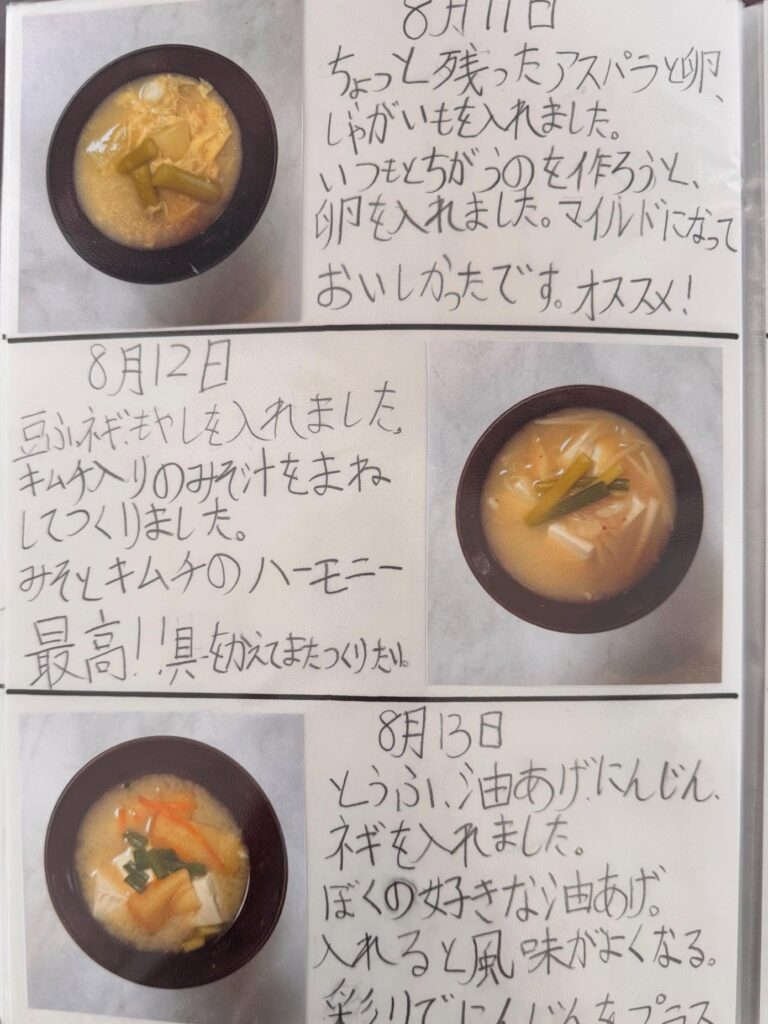 8月11日
ちょっと残ったアスパラと卵、
じゃがいもを入れました。
いつもとちがうのを作ろうと、
卵を入れました。マイルドになって
おいしかったです。オススメ!
8月12日
豆ふ、ネギ、もやしを入れました。
キムチ入りのみそ汁をまね
してつくりました。
みそとキムチのハーモニー
最高!!具をかえてまたつくりたい。
8月13日
とうふ、油あげ、にんじん、
ネギを入れました。
ぼくの好きな油あげ。
入れると風味がよくなる。
彩りでにんじんをプラス